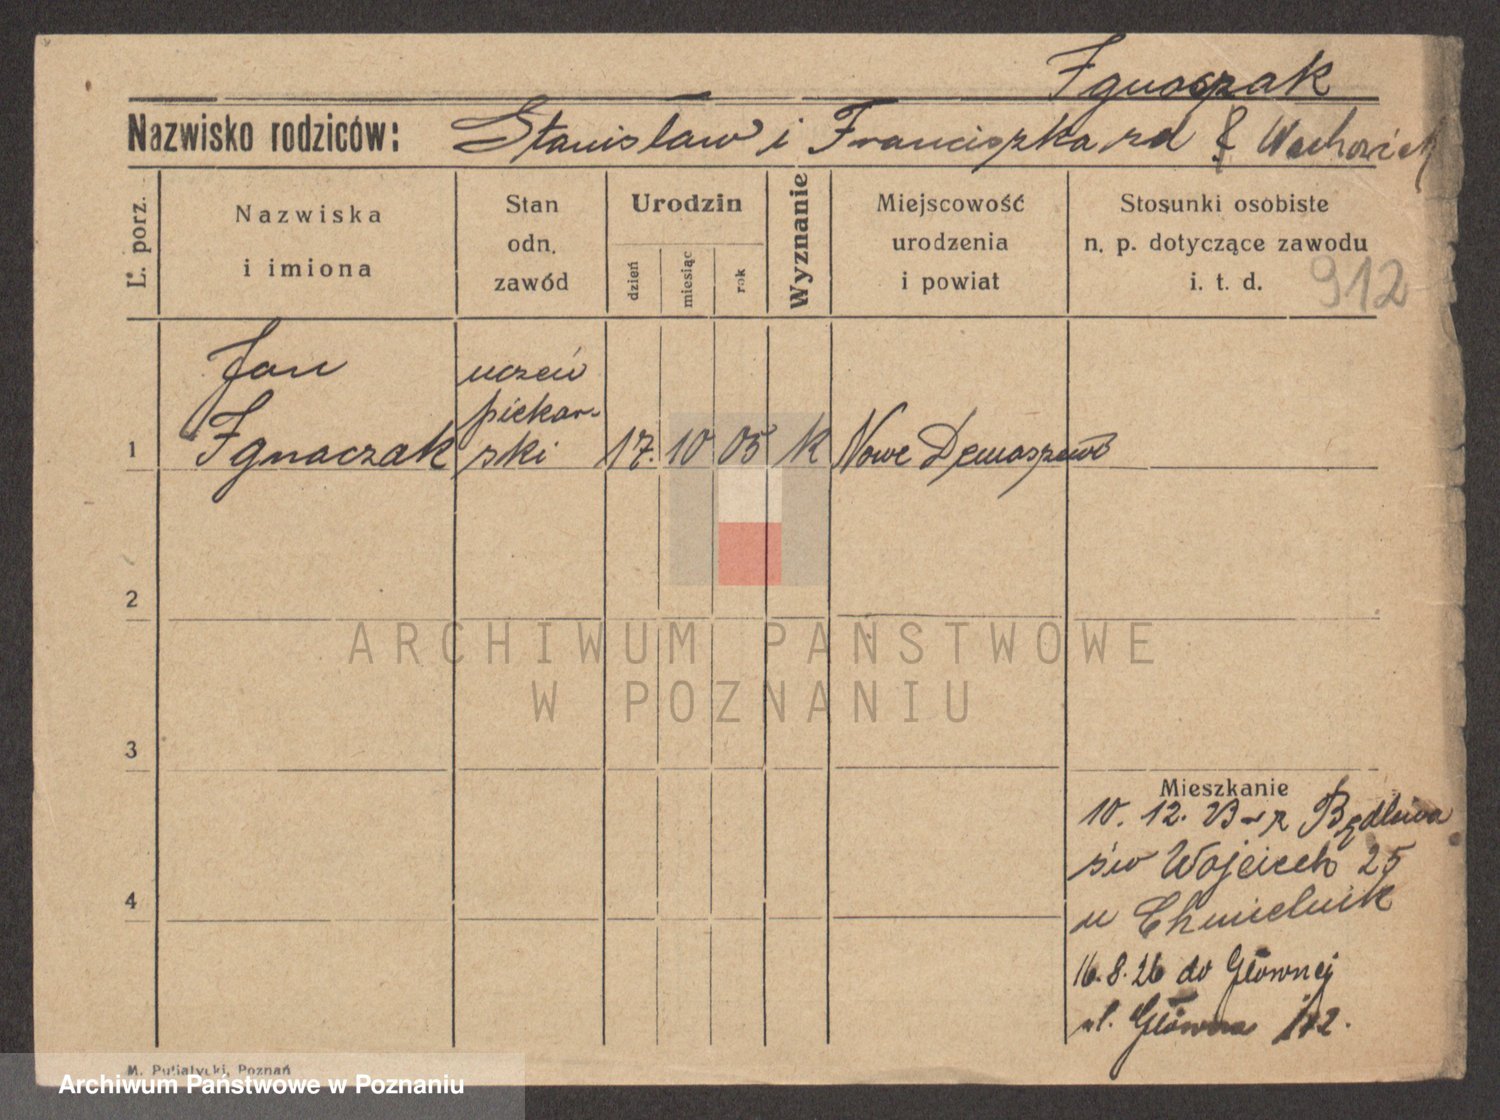 Ignaczak
Nazwisko rodziców: Stanisław i Franciszka zd
L. porz.
Nazwiska
i imiona
Stan
odn.
zawód
Urodzin
dzień
miesiąc
rok
Wyznanie
Miejscowość
urodzenia
i powiat
Stosunki osobiste
n. p. dotyczące zawodu
i. t. d.
912
Jan
Ignaczak
uczeń
piekar-
ski
1
17. 10 05 k Nowe
2
3
4
Mieszkanie
10. 12. 23 z Będlewa
św Wojciech 25
u Chmielnik
16. 8. 26 do Głównej
ul. Główna
M. Putiatycki, Poznań
ARCHIWUM PAŃSTWOWE
W POZNANIU
Archiwum Państwowe w Poznaniu